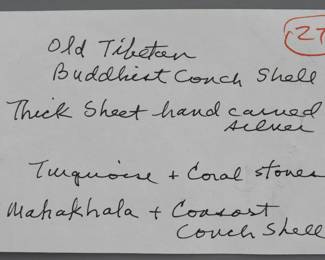 27
Old Tibetan
Buddhist Conch Shell
Thick Sheet hand carved
silver
Turquoise + Coral stones
Mahakhala + Consort
Conch Shell